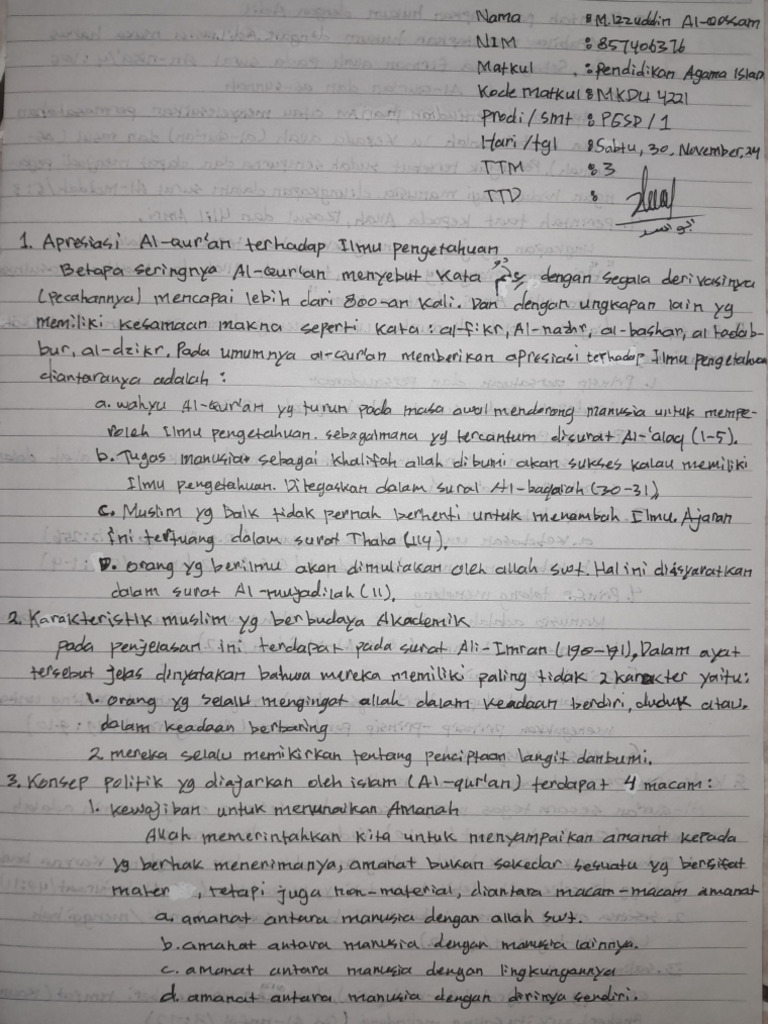 Nama : M. Izzuddin Al-Qossam
NIM : 857406376
Matkul : Pendidikan Agama Islam
Kode Matkul : MKDU 4221
Prodi / smt : PGSD / 1
Hari / tgl : Sabtu, 30, November, 24
TTM : 3
TTD :
1. Apresiasi Al-Qur'an terhadap Ilmu pengetahuan
Betapa seringnya Al-Qur'an menyebut kata dengan segala derivasinya
(pecahannya) mencapai lebih dari 800-an kali. Dan dengan ungkapan lain yg
memiliki kesamaan makna seperti kata : al-fikr, Al-nazhr, al-bashar, al tadab-
bur, al-dzikr. Pada umumnya al-qur'an memberikan apresiasi terhadap Ilmu pengetahuan
diantaranya adalah :
a. wahyu Al-Qur'an yg turun pada masa awal mendorong manusia untuk mempe-
roleh Ilmu pengetahuan. sebagaimana yg tercantum disurat Al-'alaq (1-5).
b. Tugas manusia sebagai khalifah allah dibumi akan sukses kalau memiliki
Ilmu pengetahuan. Ditegaskan dalam surat Al-baqarah (30-31)
c. Muslim yg baik tidak pernah berhenti untuk menambah Ilmu. Ajaran
ini tertuang dalam surat Thaha (114).
D. orang yg berilmu akan dimuliakan oleh allah swt. Hal ini diisyaratkan
dalam surat Al-mujadilah (11).
2. Karakteristik muslim yg berbudaya Akademik
pada penjelasan ini terdapat pada surat Ali-Imran (190-191), Dalam ayat
tersebut jelas dinyatakan bahwa mereka memiliki paling tidak 2 karakter yaitu :
1. orang yg selalu mengingat allah dalam keadaan berdiri, duduk atau
dalam keadaan berbaring
2. mereka selalu memikirkan tentang penciptaan langit dan bumi.
3. Konsep politik yg diajarkan oleh islam (Al-qur'an) terdapat 4 macam :
1. kewajiban untuk menunaikan Amanah
Allah memerintahkan kita untuk menyampaikan amanat kepada
yg berhak menerimanya, amanat bukan sekedar sesuatu yg bersifat
mater , tetapi juga non-material, diantara macam-macam amanat
a. amanat antara manusia dengan allah swt.
b. amanat antara manusia dengan manusia lainnya.
c. amanat antara manusia dengan lingkungannya
d. amanat antara manusia dengan dirinya sendiri.